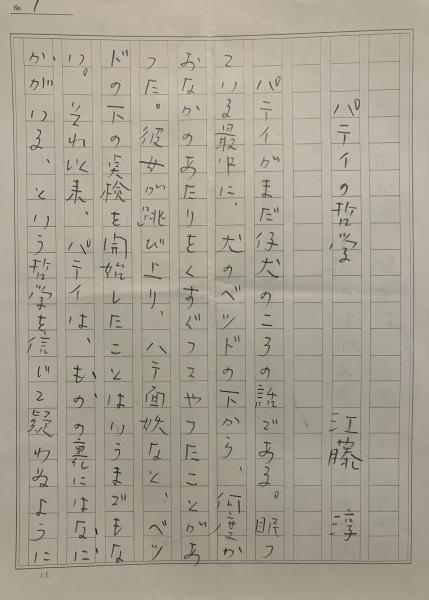 No. 1
パティの哲学
江藤 淳
パティがまだ仔犬のころの話である。眠っ
ている最中に、犬のベッドの下から、何度か
おなかのあたりをくすぐってやったことがあ
った。彼女が跳び上り、ハテ面妖なと、ベッ
ドの下の実検を開始したことはいうまでもな
い。それ以来、パティは、ものの裏にはなに
かがいる、という哲学を信じて疑わぬように